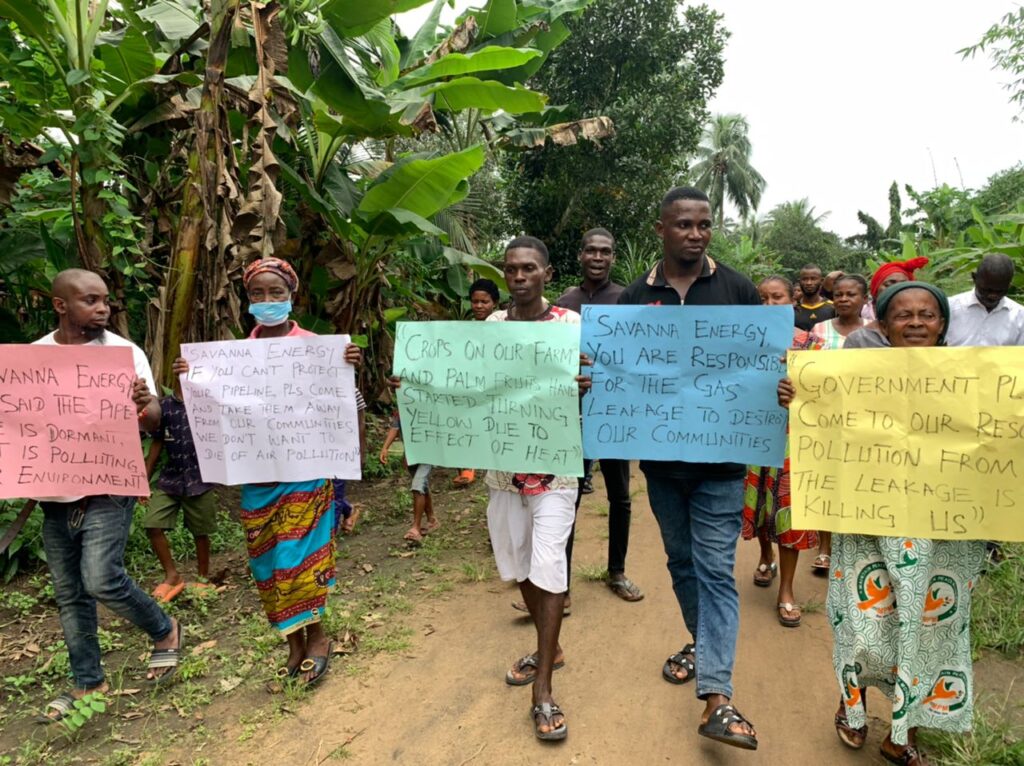 AVANNA ENERGY
SAID THE PIPE
E IS DORMANT,
T IS POLLUTING
R ENVIRONMENT
"SAVANNA ENERGY
IF YOU CAN'T PROTECT
YOUR PIPELINE, PLS COME
AND TAKE THEM AWAY
FROM OUR COMMUNITIES
WE DON'T WANT TO
DIE OF AIR POLLUTION"
"CROPS ON OUR FARM
AND PALM FRUITS HAVE
STARTED TURNING
YELLOW DUE TO
EFFECT OF HEAT"
"SAVANNA ENERGY,
YOU ARE RESPONSIBLE
FOR THE GAS
LEAKAGE TO DESTROY
OUR COMMUNITIES
"GOVERNMENT PL
COME TO OUR RESC
POLLUTION FROM
THE LEAKAGE IS
KILLING US"